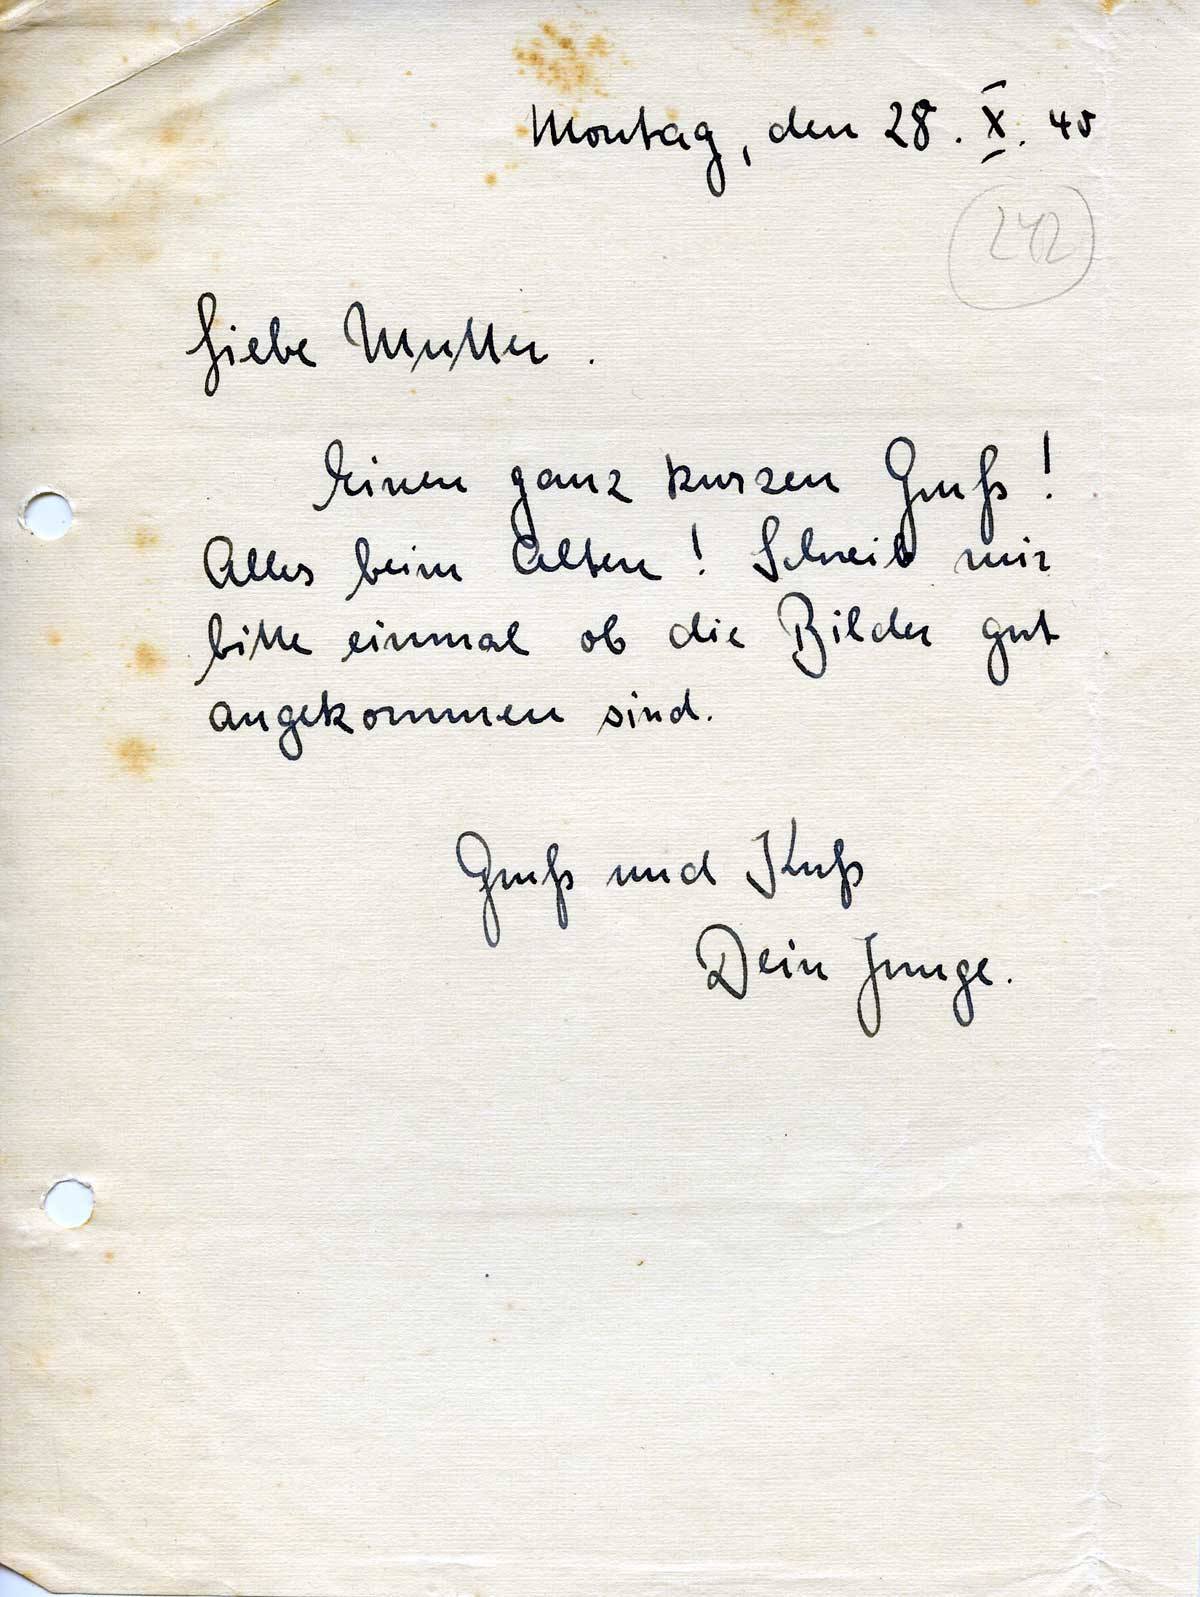 Montag, den 28. X. 40
242
Liebe Mutter.
Einen ganz kurzen Gruß!
Alles beim Alten! Schreib mir
bitte einmal ob die Bilder gut
angekommen sind.
Gruß und Kuß
Dein Junge.